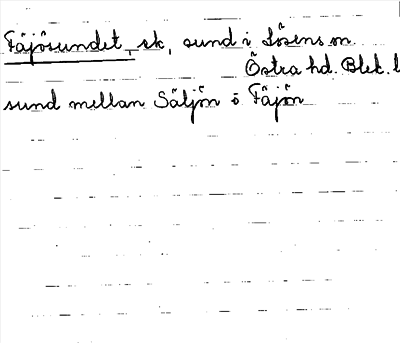 Fäjösundet, sk, sund i Lösens sn
Östra hd. Blek. l
sund mellan Säljön o Fäjön